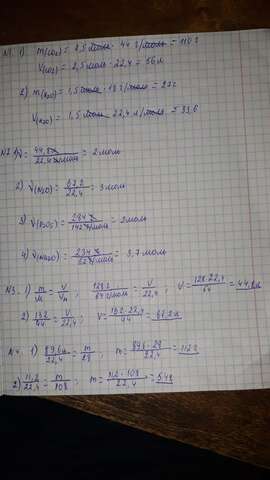 N1. 1). m(CO₂) = 2,5 моль · 44 г/моль = 110 г
V(CO₂) = 2,5 моль · 22,4 = 56 л
2) m(H₂O) = 1,5 моль · 18 г/моль = 27 г
V(H₂O) = 1,5 моль · 22,4 л/моль = 33,6
N2 1) ν = 44,8 л / 22,4 л/моль = 2 моль
2) ν(N₂O) = 67,2 / 22,4 = 3 моль
3) ν(P₂O5) = 284 г / 142 г/моль = 2 моль
4) ν(Na₂O) = 234 г / 62 г/моль = 3,7 моль
N3. 1) m/M = V/Vм ; 128 г / 64 г/моль = V/22,4 ; V = 128·22,4 / 64 = 44,8 л
2) 132/44 = V/22,4 ; V = 132·22,4 / 44 = 67,2 л
N4. 1) 89,6 л / 22,4 = m/28 ; m = 89,6·28 / 22,4 = 112 г
2) 11,2/22,4 = m/108 ; m = 11,2·108 / 22,4 = 54 г